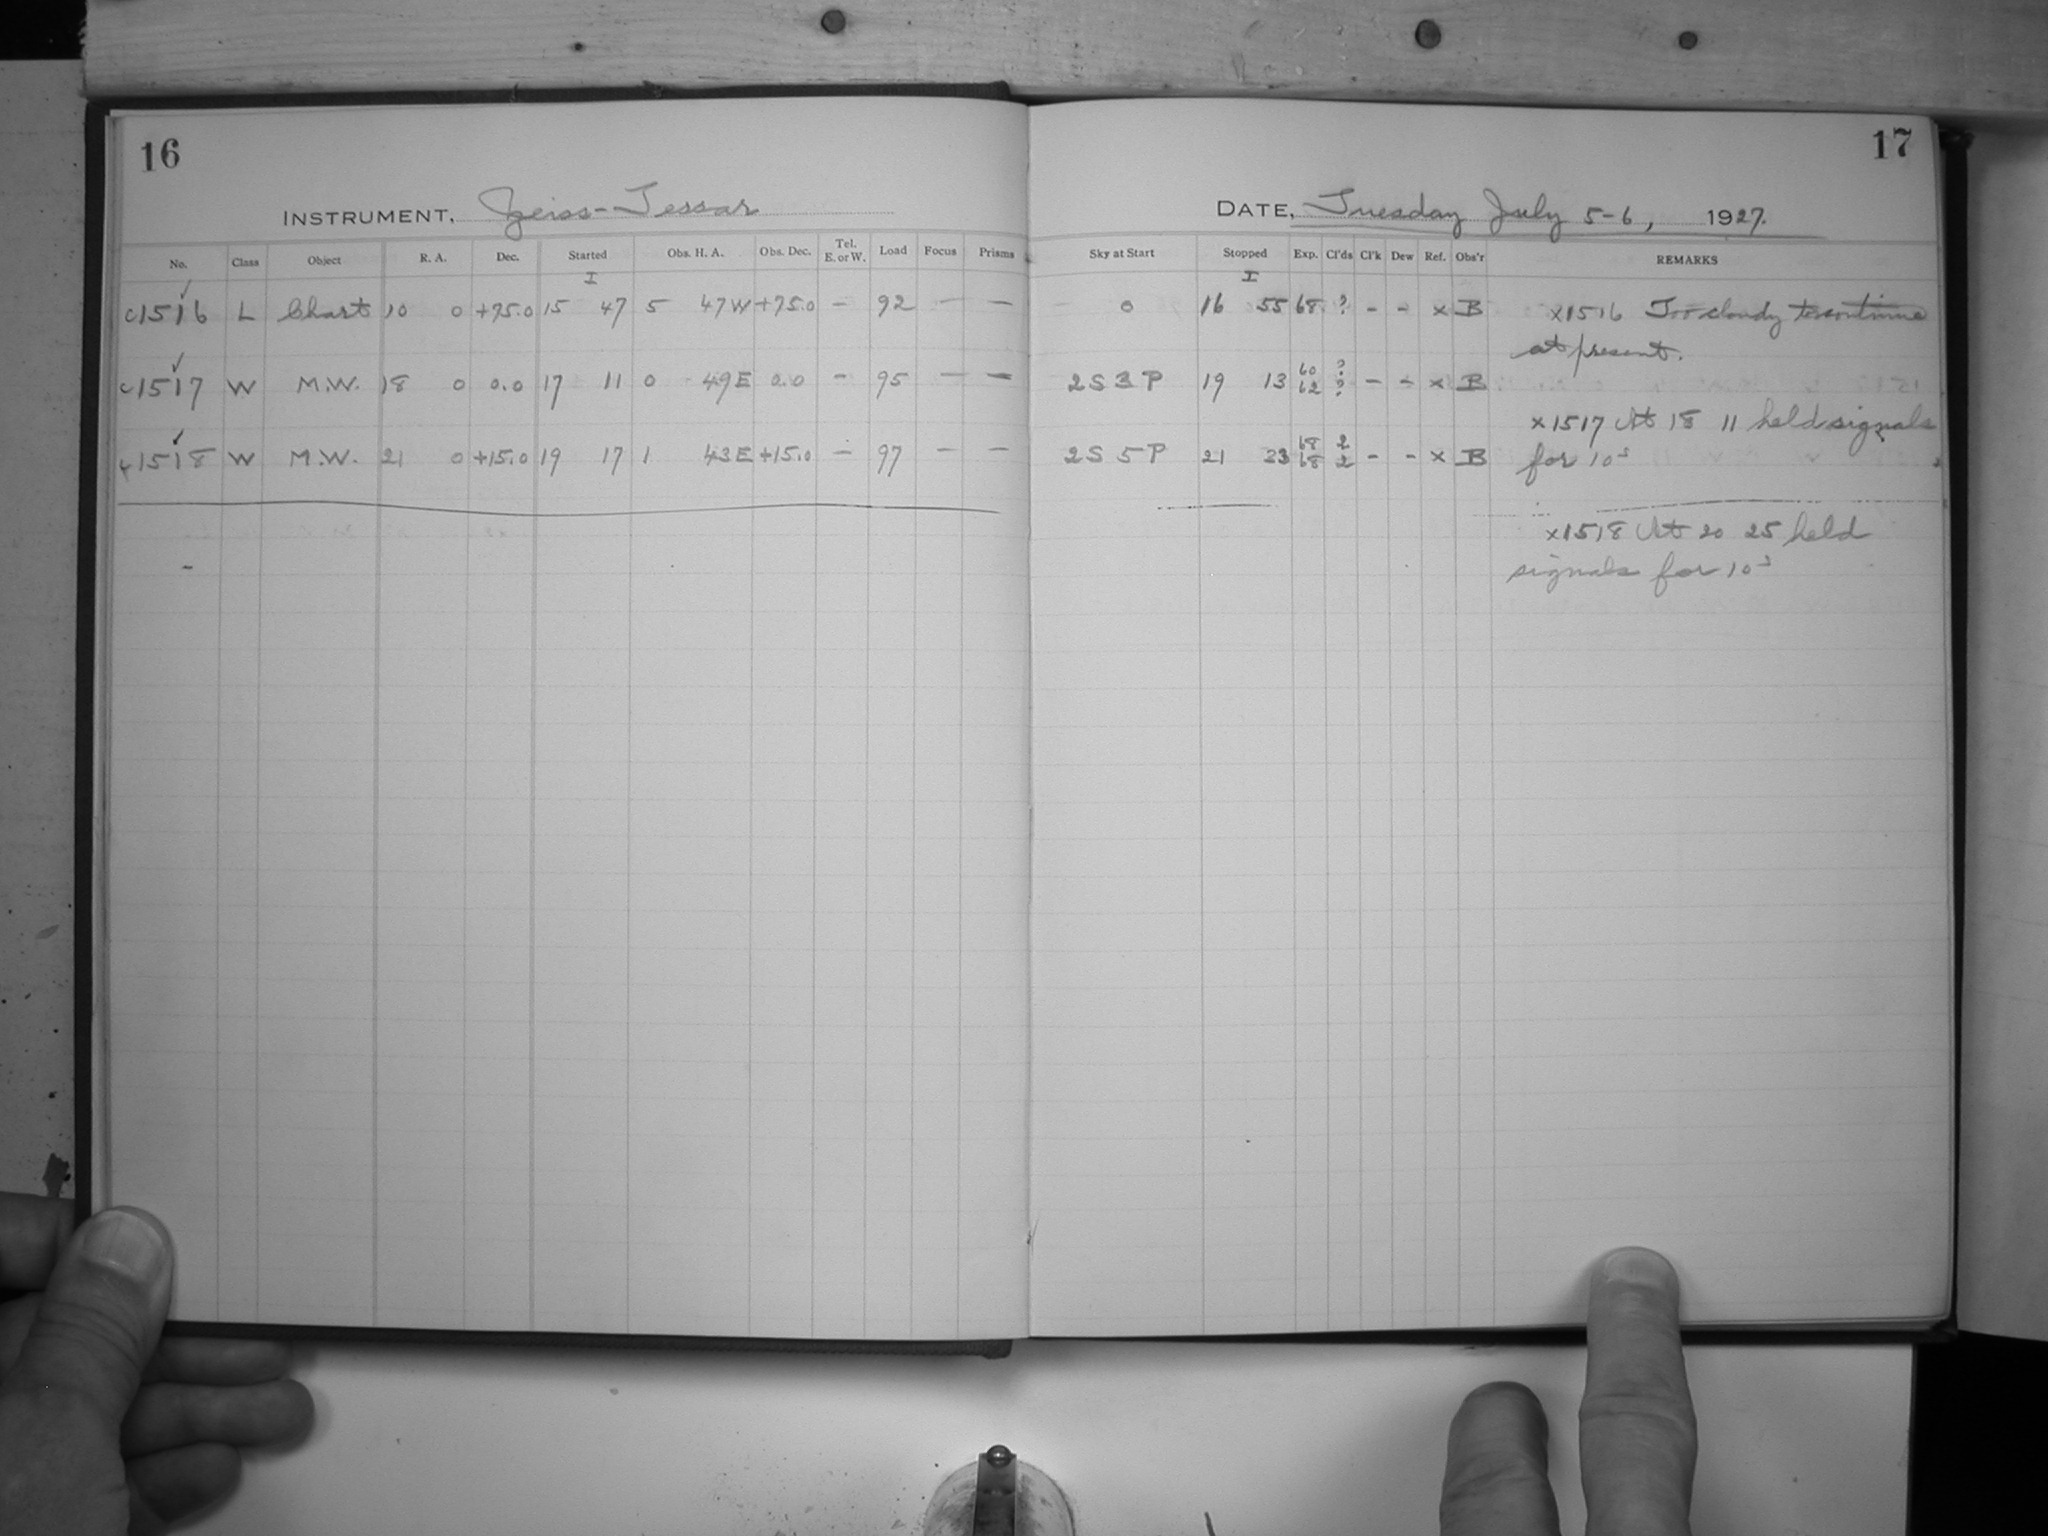 16
17
INSTRUMENT, Zeiss-Tessar
DATE, Tuesday July 5-6, 1927.
No. Class Object R. A. Dec. Started Obs. H. A. Obs. Dec. Tel. E. or W. Load Focus Prisms Sky at Start Stopped Exp. Cl'ds Cl'k Dew Ref. Obs'r REMARKS
I I
c1516 L Chart 10 0 +75.0 15 47 5 47W +75.0 - 92 - - 0 16 55 68 ? - - x B x1516 Too cloudy to continue
at present.
c1517 W M.W. 18 0 0.0 17 11 0 49E 0.0 - 95 - - 2S 3P 19 13 60 62 ? ? - - x B
x1517 At 18 11 held signals
for 10s
c1518 W M.W. 21 0 +15.0 19 17 1 43E +15.0 - 97 - - 2S 5P 21 33 68 68 2 2 - - x B
x1518 At 20 25 held
signals for 10s